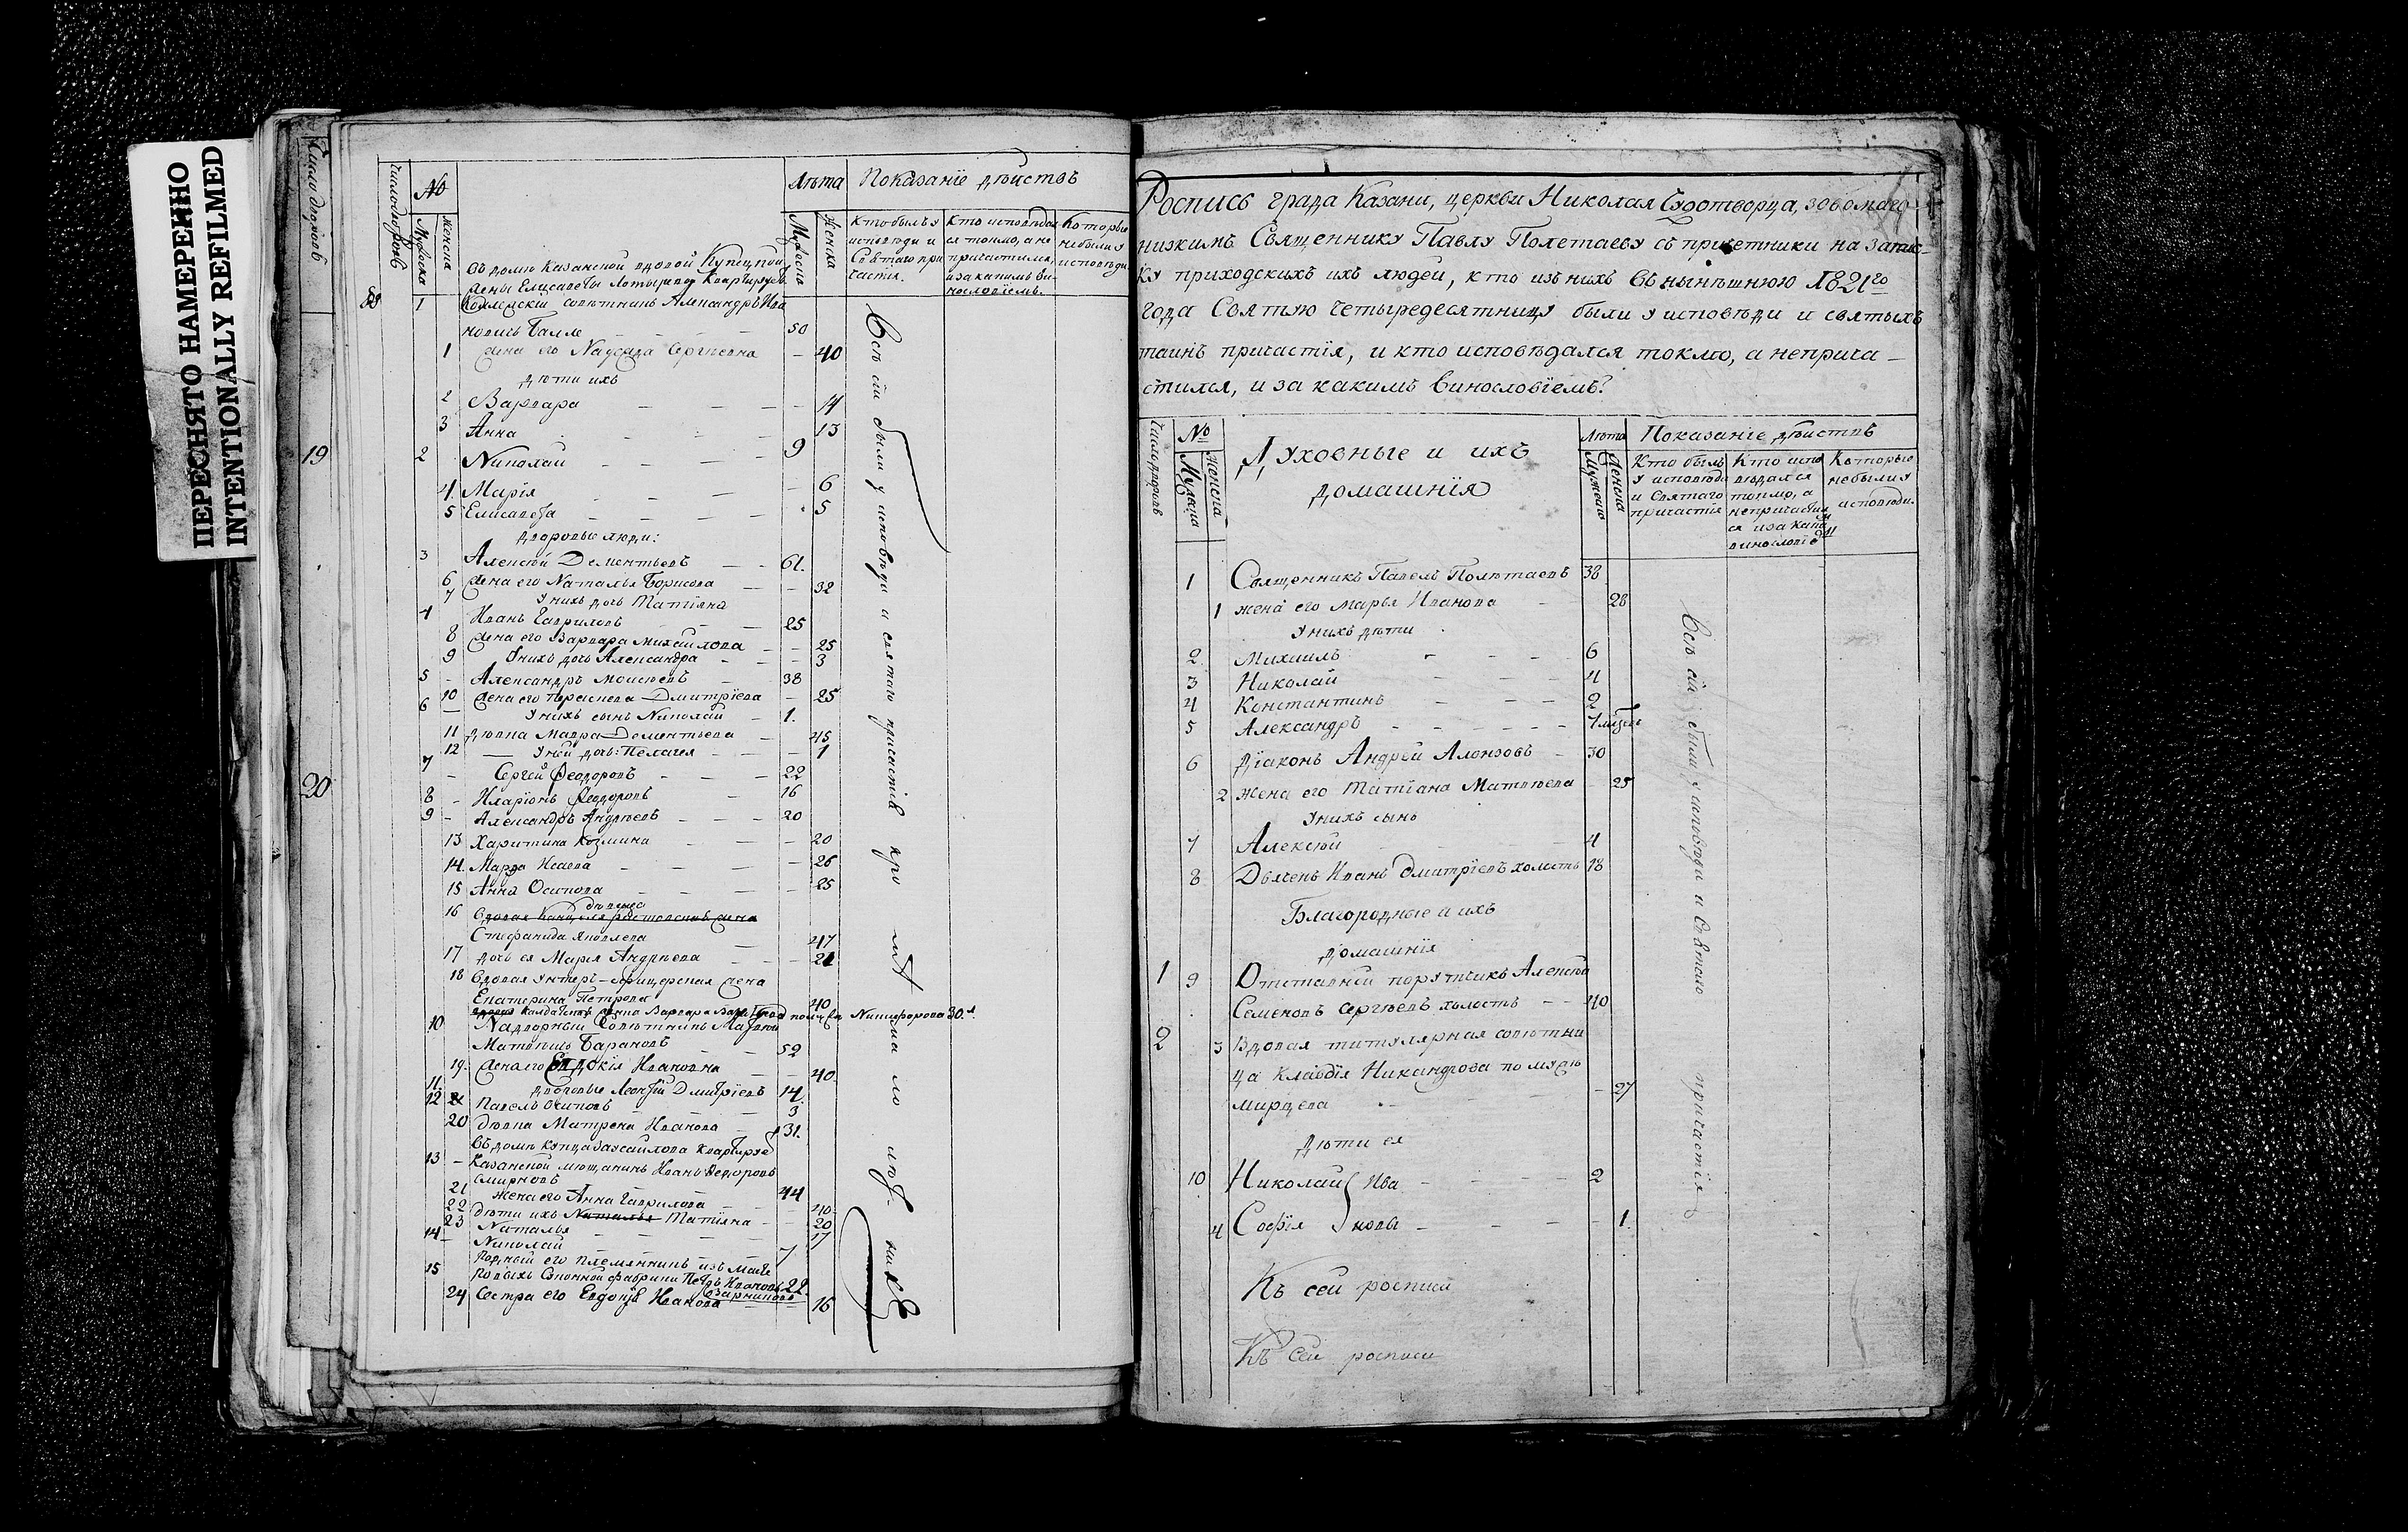 ПЕРЕСНЯТО НАМЕРЕННО
INTENTIONALLY REFILMED
Число дворовъ
19
20
Число дворовъ
№
Мужеска
Женска
Лѣта
Показаніе дѣйствъ
Мужеско
Женска
Кто былъ у исповѣди и Святаго причастія.
Кто исповѣдался токмо, а не причастился, и за какимъ винословіемъ.
Которые небыли у исповѣди
Въ домѣ Казанской вдовой Купецкой
жены Елисаветы Квартируютъ
1 Коллежскій совѣтникъ Александръ Ива
новичь Галле 50
1 жена его Надежда Сергѣевна 40
дѣти ихъ
2 Варвара 14
3 Анна 13
2 Николай 9
4. Марія 6
5 Елисавета 5
дворовые люди:
3 Алексѣй Дементьевъ 61.
6 жена его Наталья Борисова 32
7 Унихъ дочь Татіяна
4 Иванъ Гавриловъ 25
8 жена его Варвара Михайлова 25
9 Унихъ дочь Александра 3
5 Александръ Моисѣевъ 38
10 жена его Дмитріева 25
6 Унихъ сынъ Николай 1.
11 дѣвка Мавра Дементьева 45
12 Уней дочь: Пелагея 1
7 Сергѣй Феодоровъ 22
8 Иларіонъ Феодоровъ 16
9 Александръ Андрѣевъ 20
13 Харитина Козмина 20
14. Марѳа Исаева 26
15 Анна Осипова 25
16 Вдовая жена
Стефанида Яковлева 47
17 дочь ея Марія Андрѣева 21
18 Вдовая Унтеръ-офицерская жена
Екатерина Петрова 40
Варвара Никифорова 30.
10 Надворный Совѣтникъ
Матвѣичь Барановъ 52
19. жена его Евдокія Ивановна 40
11. дворовые Леонтій Дмитріевъ 14
12 Павелъ Осиповъ 3
20 дѣвка Матрена Иванова 31.
Въ домѣ купца Квартируетъ
13 Казанской мѣщанинъ Иванъ Федоровъ
Смирновъ 44
21 жена его Анна Гаврилова 40
22 дѣти ихъ Наталья Татіяна 20
23 Наталья 17
14 Николай 7
родный его племянникъ изъ масте
15 ровыхъ Суконной фабрики Петръ Ивановъ 22
24 Сестра его Евдокія Иванова 16
Всѣ сіи были у исповѣди и святаго причастія кро мѣ ма ло лѣт никъ
Роспись града Казани, церкви Николая Чудотворца, зовомаго
низкимъ Священнику Павлу Полетаеву съ причетники на запис-
ку приходскихъ ихъ людей, кто изъ нихъ въ нынѣшнюю 1821го
года Святую Четыредесятницу были у исповѣди и святыхъ
таинъ причастія, и кто исповѣдался токмо, а неприча-
стился, и за какимъ винословіемъ?
Число дворовъ
№
Мужеска
Женска
Духовные и ихъ
домашнія
Лѣта
Мужеско
Женска
Показаніе дѣйствъ
Кто былъ у исповѣди и Святаго причастія
Кто исповѣдался токмо, а непричастился и за какимъ винословіемъ
Которые небыли у исповѣди.
1 Священникъ Павелъ Полѣтаевъ 38
1 жена его Марья Иванова 28
Унихъ дѣти
2. Михаилъ 6
3 Николай 4
4 Константинъ 2
5 Александръ
6 Діаконъ Андрей Алонзовъ 30
2 жена его Татіана Матвѣева 25
Унихъ сынъ
7 Алексѣй 4
8 Дьячекъ Иванъ Дмитріевъ холостъ 18
Благородные и ихъ
домашнія
1 9 Отставной порутчикъ Алексѣй
Семеновъ Сергѣевъ холостъ 40
2 3 Вдовая титулярная совѣтни
ца Клавдія Никандрова по мужѣ
27
Дѣти ея
10 Николай Ива 2
4 Софія новы 1.
Къ сей росписи
Къ сей росписи
Всѣ сіи были у исповѣди и Святаго причастія